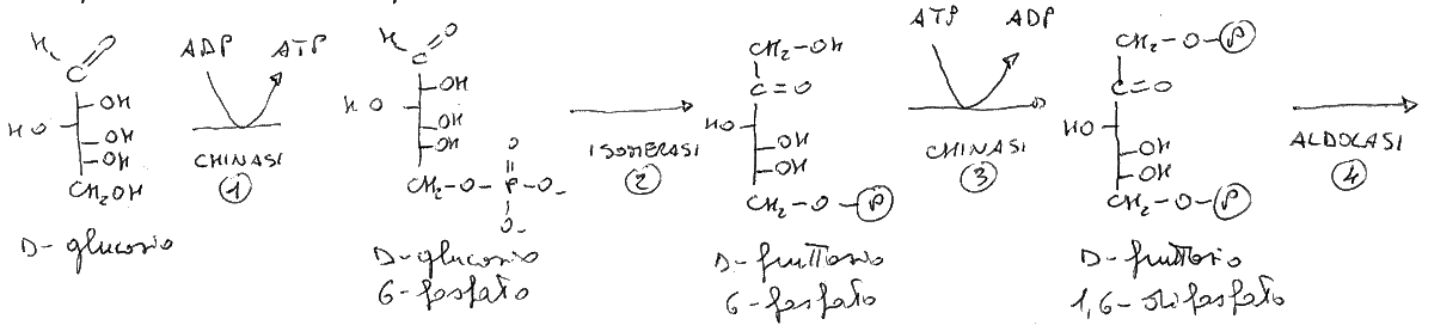 H
O
C
OH
HO
OH
OH
CH₂OH
D-glucosio
ADP ATP
CHINASI
1
H
O
C
OH
HO
OH
OH
O
CH₂-O-P-O-
O-
D-glucosio
6-fosfato
ISOMERASI
2
CH₂-OH
C=O
HO
OH
OH
CH₂-O-P
D-fruttosio
6-fosfato
ATP ADP
CHINASI
3
CH₂-O-P
C=O
HO
OH
OH
CH₂-O-P
D-fruttosio
1,6-difosfato
ALDOLASI
4